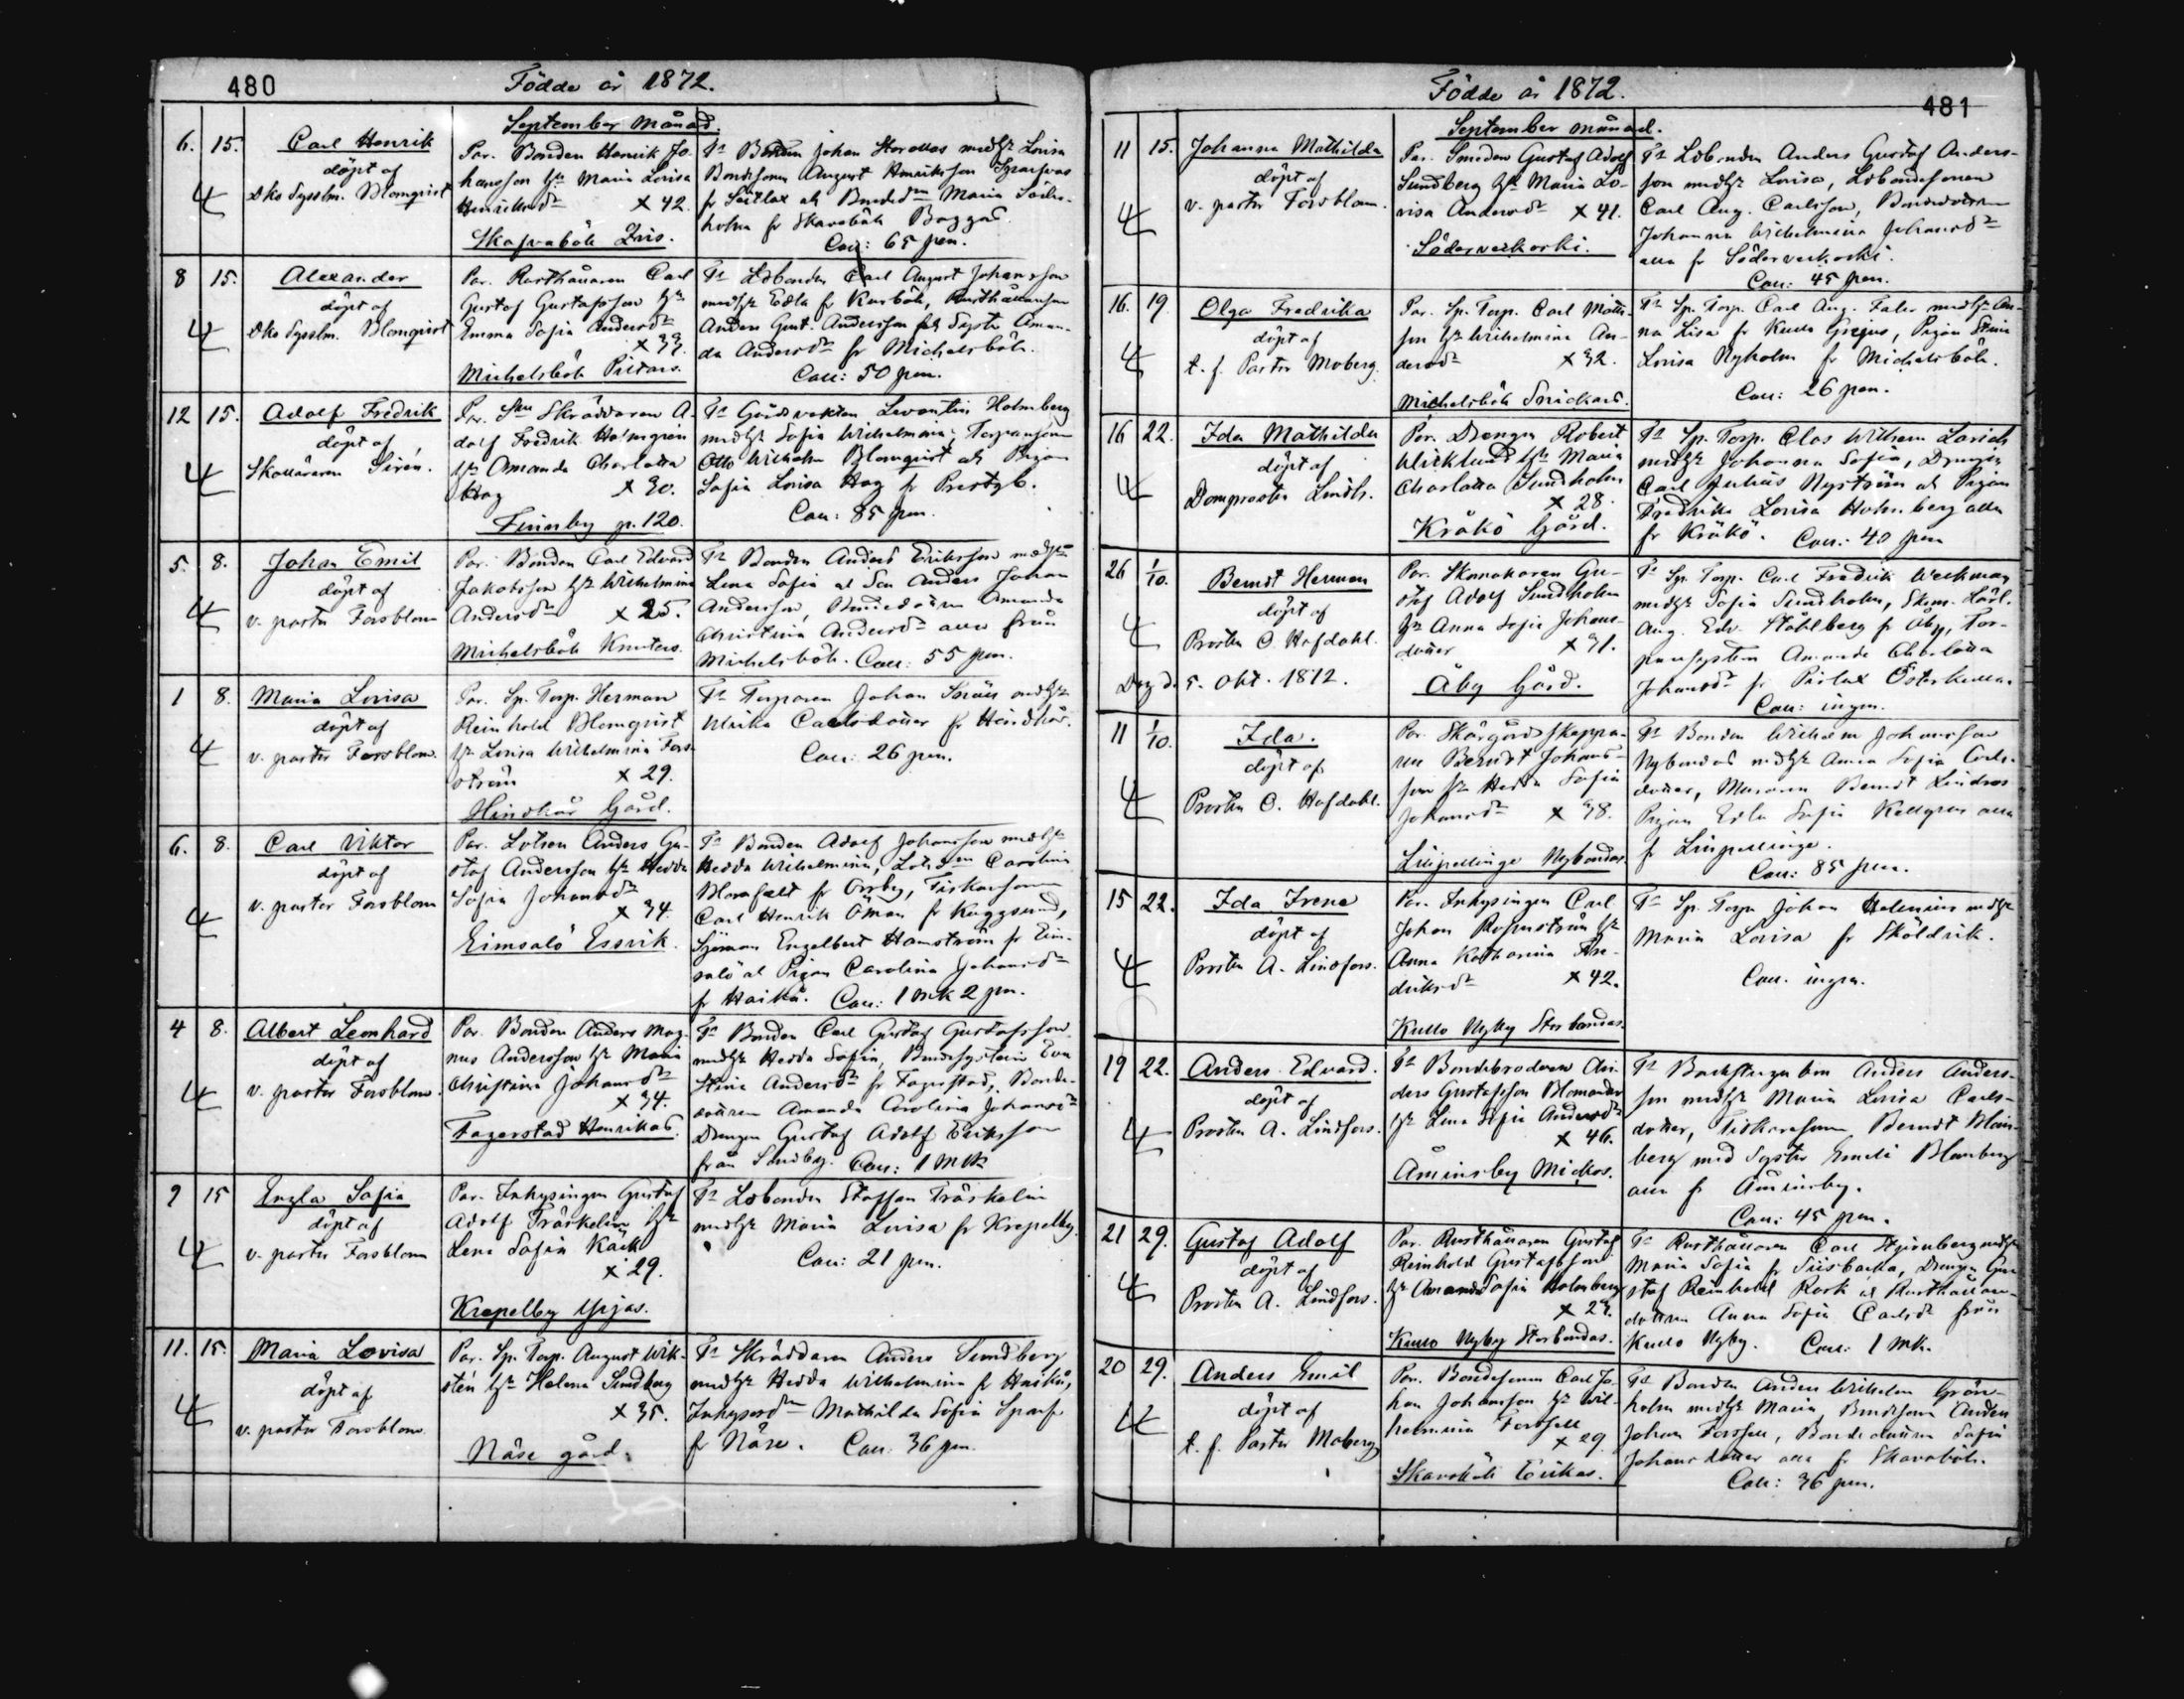 480
Födde år 1872.
September Månad.
6. 15. Carl Henrik
döpt af
Dko Sysslm. Blomqvist
4
Par. Bonden Henrik Jo-
hansson h. Maria Lovisa
Henriksdr × 42.
Skafvaböle Zris.
Tr Bonden Johan med h. Lovisa
Bondesonen August Henriksson
fr Seitlax ch Bonded Maria Söder-
holm fr Skavaböle Baggas
Coll: 65 pen.
8 15. Alexander
döpt af
4 Dko Sysslm. Blomqvist
Par. Rusthållaren Carl
Gustaf Gustafsson h.
Emma Sofia Andersdr
× 33.
Michelsböle Pittars.
Tr Ldbonden Carl August Johansson
med h. Edla fr Karböle, Rusthållarson
Anders Gust. Andersson Syster Aman-
da Andersdr fr Michelsböle.
Coll: 50 pen.
12 15. Adolf Fredrik
döpt af
4 Skolläraren Sirén.
Par. Skräddaren A-
dolf Fredrik Holmgrén
h. Amanda Charlotta
Hag × 30.
Finnby gr. 120.
Tr Gårdsvakten Levantin Holmberg
med h. Sofia Wilhelmina, Torparsonen
Otto Wilhelm Blomqvist ch Pigan
Sofia Lovisa Hag fr Prestgb.
Coll: 85 pen.
5. 8. Johan Emil
döpt af
4 v. pastor Forsblom
Par. Bonden Carl Edvard
Jakobsson h. Wilhelmina
Andersdr × 25.
Michelsböle Knuters.
Tr Bonden Anders Eriksson med h.
Lena Sofia ch Son Anders Johan
Andersson, Bondedottren Amanda
Christina Andersdr alla från
Michelsböle. Coll: 55 pen.
1 8. Maria Lovisa
döpt af
4 v. pastor Forsblom.
Par. Sp. Torp. Herman
Reinhold Blomqvist
h. Lovisa Wilhelmina Fors-
ström × 29.
Hindhår Gård.
Tr Torparen Johan med h.
Ulrika Carlsdotter fr Hindhår.
Coll: 26 pen.
6. 8. Carl Viktor
döpt af
4 v. pastor Forsblom
Par. Lotsen Anders Gu-
staf Andersson h. Hedda
Sofia Johansdr
× 34.
Eimsalö Essvik.
Tr Bonden Adolf Johansson med h.
Hedda Wilhelmina, Carolina
fr Orrby, Fiskarsonen
Carl Henrik Öman fr Kuggsund,
Sjöman Engelbert Hamström fr Eim-
salö ch Pigan Carolina Johansdr
fr Haikå. Coll: 1 mk 2 pen.
4 8. Albert Leonhard
döpt af
4 v. pastor Forsblom.
Par. Bonden Anders Mag-
nus Andersson h. Maria
Christina Johansdr
× 34.
Fagerstad Henrikas.
Tr Bonden Carl Gustaf Gustafsson
med h. Hedda Sofia, Eva
Stina Andersdr fr Fagerstad, Bonde-
dottren Amanda Carolina Johansdr
Drengen Gustaf Adolf Eriksson
från Sundby. Coll: 1 Mk
9 15 Engla Sofia
döpt af
4 v. pastor Forsblom
Par. Inhysingen Gustaf
Adolf Träskelin h.
Lena Sofia Käck
× 29.
Krepelby Yrjas.
Tr Ldbonden Staffan Träskelin
med h. Maria Lovisa fr Krepelby.
Coll: 21 pen.
11. 15. Maria Lovisa
döpt af
4 v. pastor Forsblom
Par. Sp. Torp. August Wik-
stén h. Helena Sundberg
× 35.
Näse gård.
Tr Skräddaren Anders Sundberg
med h. Hedda Wilhelmina fr Haikå,
Mathilda Sofia Sparf
fr Näse. Coll: 36 pen.
Födde år 1872.
481
September månad.
11 15. Johanna Mathilda
döpt af
4 v. pastor Forsblom.
Par. Smeden Gustaf Adolf
Sundberg h. Maria Lo-
visa Andersdr × 41.
Söderveckoski.
Tr Ldbonden Anders Gustaf Anders-
son med h. Lovisa, Ldbondesonen
Carl Aug. Carlsson, Bondedottren
Johanna Wilhelmina Johansdr
alla fr Söderveckoski.
Coll: 45 pen.
16. 19 Olga Fredrika
döpt af
4 t. f. Pastor Moberg.
Par. Sp. Torp. Carl Matts-
son h. Wilhelmina An-
dersdr × 32.
Michelsböle Snickars.
Tr Sp. Torp. Carl Aug. med h. An-
na Lisa fr Kullo Grejus, Pigan Stina
Lovisa Nyholm fr Michelsböle.
Coll: 26 pen.
16 22. Ida Mathilda
döpt af
4 Domprosten Lindh.
Par. Drengen Robert
Wicklund h. Maria
Charlotta Sundholm
× 28.
Kråkö Gård.
Tr Sp. Torp. Clas Wilhelm
med h. Johanna Sofia, Drengen
Carl Julius Nyström ch Pigan
Fredrika Lovisa Holmberg alla
fr Kråkö. Coll: 40 pen
26 1/10. Berndt Herman
döpt af
4 Prosten C. Hofdahl.
Död d. 5. Okt. 1872.
Par. Skomakaren Gu-
staf Adolf Sundholm
h. Anna Sofia Johans-
dotter × 31.
Åby Gård.
Tr Sp. Torp. Carl Fredrik Weckman
med h. Sofia Sundholm, Skom. Lärl.
Aug. Edv. Stahlberg fr Åby, Tor-
paresystern Amanda Charlotta
Johansdr fr Pirlax Österkulla.
Coll: ingen.
11 1/10. Ida.
döpt af
4 Prosten C. Hofdahl.
Par. Skärgårdsskeppa-
ren Berndt Johans-
son h. Hedda Sofia
Johansdr × 38.
Liljpellinge Nybondas.
Tr Bonden Wilhelm Johansson
Nybondas med h. Anna Sofia Carls-
dotter, Muraren Berndt Lindros
Pigan Edla Sofia Kellgren alla
fr Liljpellinge.
Coll: 85 pen.
15 22. Ida Irene
döpt af
4 Prosten A. Lindfors.
Par. Inhysingen Carl
Johan h.
Anna Katharina Fre-
driksdr × 42.
Kullo Nyby Storbondas.
Tr Sp. Torp. Johan Helenius med h.
Maria Lovisa fr Sköldvik.
Coll. ingen.
19 22. Anders Edvard.
döpt af
4 Prosten A. Lindfors.
Tr Bondebrodren An-
ders Gustafsson Blomander
h. Lena Sofia Andersdr
× 46.
Åminsby Mickos.
Tr Backstugubon Anders Anders-
son med h. Maria Lovisa Carls-
dotter, Fiskaresonen Berndt Blom-
berg med Syster Emeli Blomberg
alla fr Åminsby.
Coll: 45 pen.
21 29. Gustaf Adolf
döpt af
4 Prosten A. Lindfors.
Par. Rusthållaren Gustaf
Reinhold Gustafsson
h. Amanda Sofia Holmberg
× 23.
Kullo Nyby Storbondas.
Tr Rusthållaren Carl Stjernberg med h.
Maria Sofia fr Tiisbacka, Drengen Gu-
staf Reinhold Rask ch Rusthållare-
dottren Anna Sofia Carlsdr från
Kullo Nyby. Coll: 1 Mk.
20 29. Anders Emil
döpt af
4 t. f. Pastor Moberg
Par. Bondesonen Carl Jo-
han Johansson h. Wil-
helmina Forssell
× 29
Skavaböle Erikas.
Tr Bonden Anders Wilhelm Grön-
holm med h. Maria, Bondesonen Anders
Johan Forssell, Bondedottren Sofia
Johansdotter alla fr Skavaböle.
Coll: 36 pen.